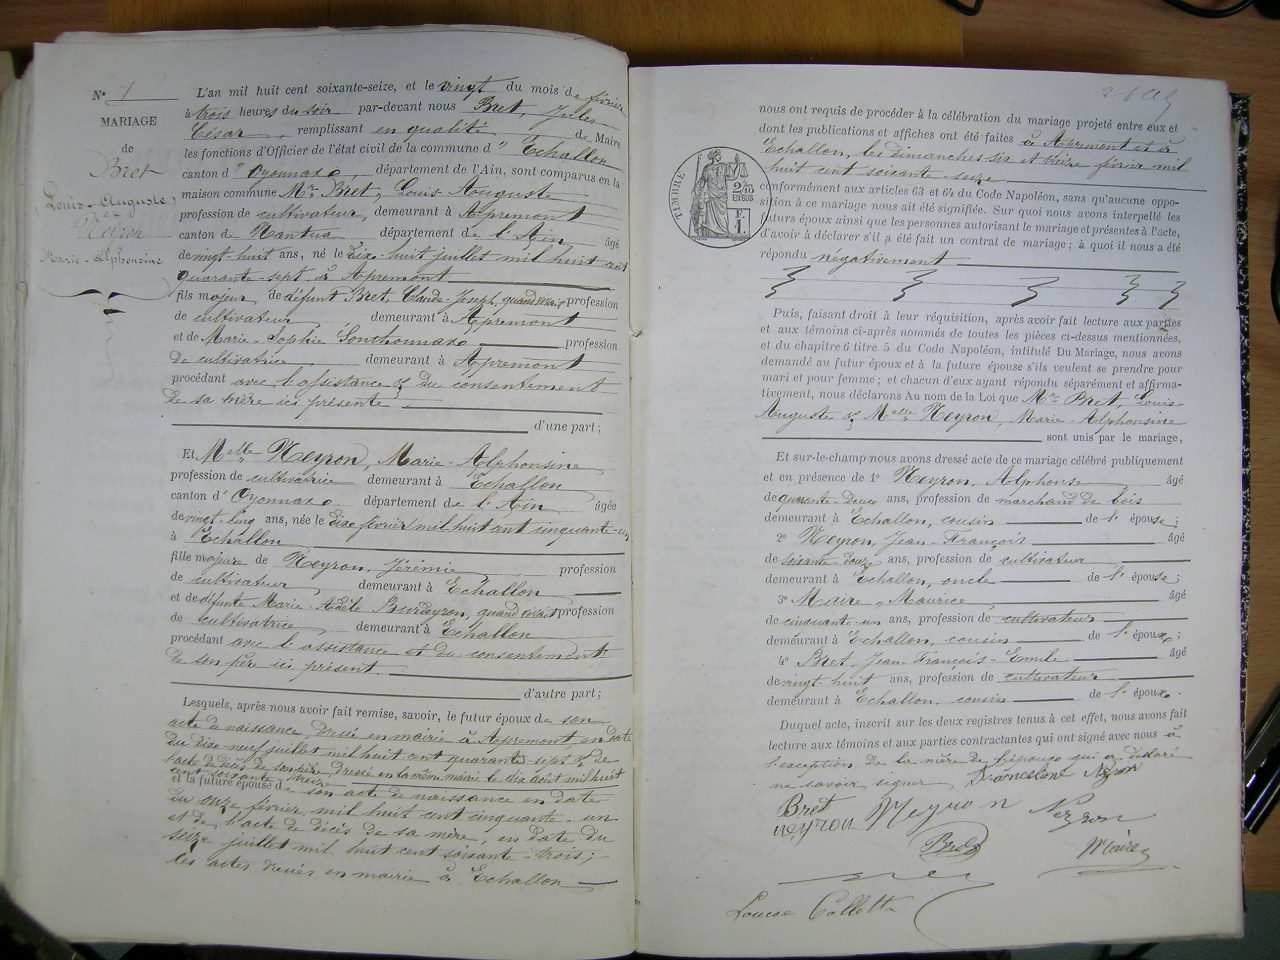 N° 1
MARIAGE
de
Bret
Louis-Auguste
et
Neyron
Marie-Alphonsine
L'an mil huit cent soixante-seize, et le vingt du mois de février
à trois heures du soir par-devant nous Bret, Jules
César, remplissant en qualité de Maire
les fonctions d'Officier de l'état civil de la commune d' Echallon
canton d' Oyonnax, département de l'Ain, sont comparus en la
maison commune Mr Bret, Louis-Auguste
profession de cultivateur, demeurant à Apremont
canton de Nantua département de l'Ain, âgé
de vingt-huit ans, né le dix-huit juillet mil huit cent
quarante-sept à Apremont
fils majeur de défunt Bret Claude-Joseph, quand vivait profession
de cultivateur demeurant à Apremont
et de Marie-Sophie Gonthonnaxe profession
de cultivatrice demeurant à Apremont
procédant avec l'assistance & du consentement
de sa mère ici présente
d'une part;
Et Melle Neyron, Marie-Alphonsine
profession de cultivatrice demeurant à Echallon
canton d' Oyonnax département de l'Ain âgée
de vingt-cinq ans, née le dix février mil huit cent cinquante-un
à Echallon
fille majeure de Neyron, Jérémie profession
de cultivateur, demeurant à Echallon
et de défunte Marie-Adèle Burdeyron, quand vivait profession
de cultivatrice demeurant à Echallon
procédant avec l'assistance et du consentement
de son père ici présent.
d'autre part;
Lesquels, après nous avoir fait remise, savoir, le futur époux de son
acte de naissance, dressé en mairie à Apremont, en date
du dix-neuf juillet mil huit cent quarante-sept & de
l'acte de décès de son père, dressé en la même mairie le dix août mil huit
cent soixante
et la future épouse de son acte de naissance en date
du onze février mil huit cent cinquante-un
et de l'acte de décès de sa mère, en date du
seize juillet mil huit cent soixante-trois;
les actes dressés en mairie à Echallon
TIMBRE
2/10
EN SUS
F.
1.
nous ont requis de procéder à la célébration du mariage projeté entre eux et
dont les publications et affiches ont été faites à Apremont et à
Echallon, les dimanches six et treize février mil
huit cent soixante-seize
conformément aux articles 63 et 64 du Code Napoléon, sans qu'aucune oppo-
sition à ce mariage nous ait été signifiée. Sur quoi nous avons interpellé les
futurs époux ainsi que les personnes autorisant le mariage et présentes à l'acte,
d'avoir à déclarer s'il a été fait un contrat de mariage; à quoi il nous a été
répondu négativement
Puis, faisant droit à leur réquisition, après avoir fait lecture aux parties
et aux témoins ci-après nommés de toutes les pièces ci-dessus mentionnées,
et du chapitre 6 titre 5 du Code Napoléon, intitulé Du Mariage, nous avons
demandé au futur époux et à la future épouse s'ils veulent se prendre pour
mari et pour femme; et chacun d'eux ayant répondu séparément et affirma-
tivement, nous déclarons Au nom de la Loi que Mr Bret, Louis-
Auguste & Melle Neyron, Marie-Alphonsine
sont unis par le mariage,
Et sur-le-champ nous avons dressé acte de ce mariage célébré publiquement
et en présence de 1° Neyron, Alphonse âgé
de quarante-deux ans, profession de marchand de bois
demeurant à Echallon, cousin de l' épouse;
2° Neyron, Jean-François âgé
de soixante-douze ans, profession de cultivateur
demeurant à Echallon, oncle de l' épouse;
3° Maire, Maurice, âgé
de cinquante-un ans, profession de cultivateur
demeurant à Echallon, cousin de l' épouse;
4° Bret, Jean-François-Emile âgé
de vingt-huit ans, profession de cultivateur
demeurant à Echallon, cousin de l' époux.
Duquel acte, inscrit sur les deux registres tenus à cet effet, nous avons fait
lecture aux témoins et aux parties contractantes qui ont signé avec nous à
l'exception de la mère de l'époux qui a déclaré
ne savoir signer. Neyron
Bret Neyron Neyron
neyron
Bret Maire
Louise Collett